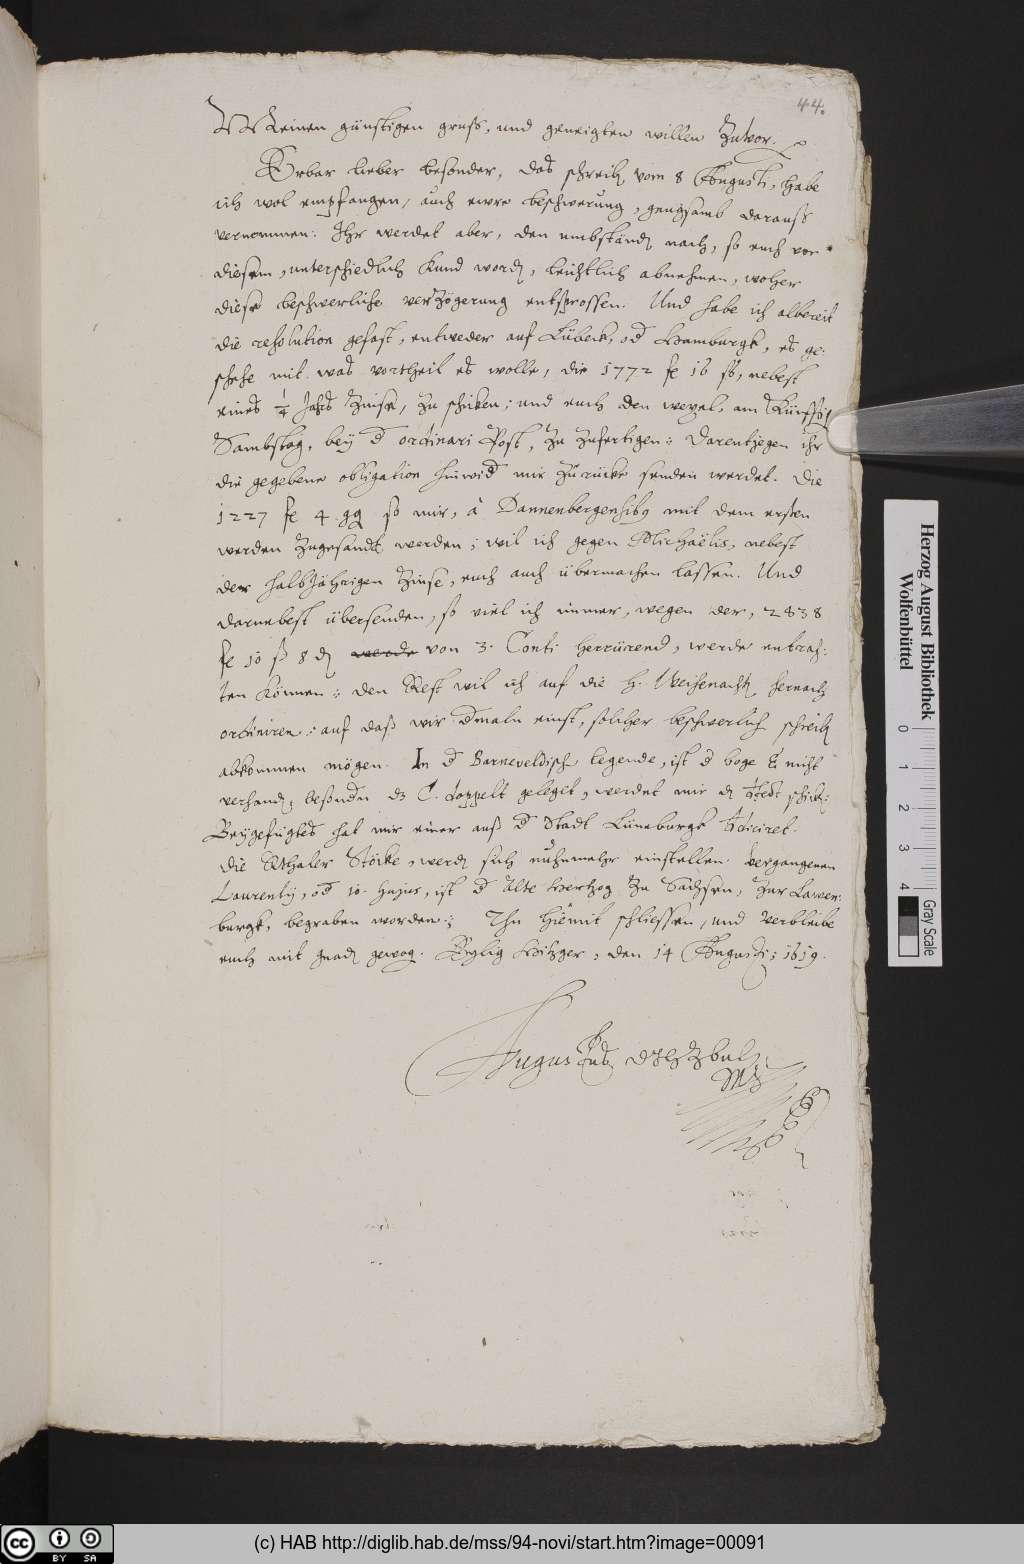 44.
Meinen günstigen gruß, und geneigten willen Zuvor.
Erbar lieber besonder, das schreib vom 8 Augusti, habe
ich wol empfangen, auch ewre beschwerung, gnugsamb darauß
vernommen: Ihr werdet aber, den umbständ nach, so euch von
diesem, unterschiedlich kund word, leichtlich abnehmen, woher
diese beschwerliche verzögerung entsprossen. Und habe ich albereit
die resolution gefast, entweder auf Lübeck, od Hamburgk, es ge:
schehe mit was vortheil es wolle, die 1772 fl 16 ß, nebest
eines 1/4 Jahrs Zinse, zu schicken; und euch den wexel, am
Sambstag, bey d ordinari Post, zu zufertigen: Darentjegen ihr
die gegebene obligation hinwid mir zurücke senden werdet. Die
1227 fl 4 gg so mir, à Dannenbergensibus mit dem ersten
werden zugesandt werden; wil ich gegen Michaëlis, nebest
der halbjährigen Zinse, euch auch übermachen lassen. Und
darnebest übersenden, so viel ich immer, wegen der, 2838
fl 10 ß 8 d werde von 3. Conti herrürend, werde entrah:
ten können: den Rest wil ich auf die H. Weihenacht hernach
ordiniren: auf daß wir dmaln einst, solcher beschwerlich schreib
abkommen mögen. In d Barneveldisch legende, ist d boge B nicht
verhand, besondn ds C. doppelt geleget, werdet mir d schick:
Beygefügtes hat mir einer auß d Stadt Lüneburgk dediciret.
die Rthaler Stöcke, werd sich nuhnmehr einstellen. Vergangenen
Laurentij, od 10. hujus, ist d alte Hertzog zu Sachsen, zur Lawen:
burgk, begraben worden.: Thu hiemit schliessen, und verbleibe
euch mit gnad gewog. Eylig Hitzger, den 14 Augusti; 1619.
Augustus
Herzog August Bibliothek
Wolfenbüttel
0 1 2 3 4
Gray Scale
cc BY SA
(c) HAB http://diglib.hab.de/mss/94-novi/start.htm?image=00091